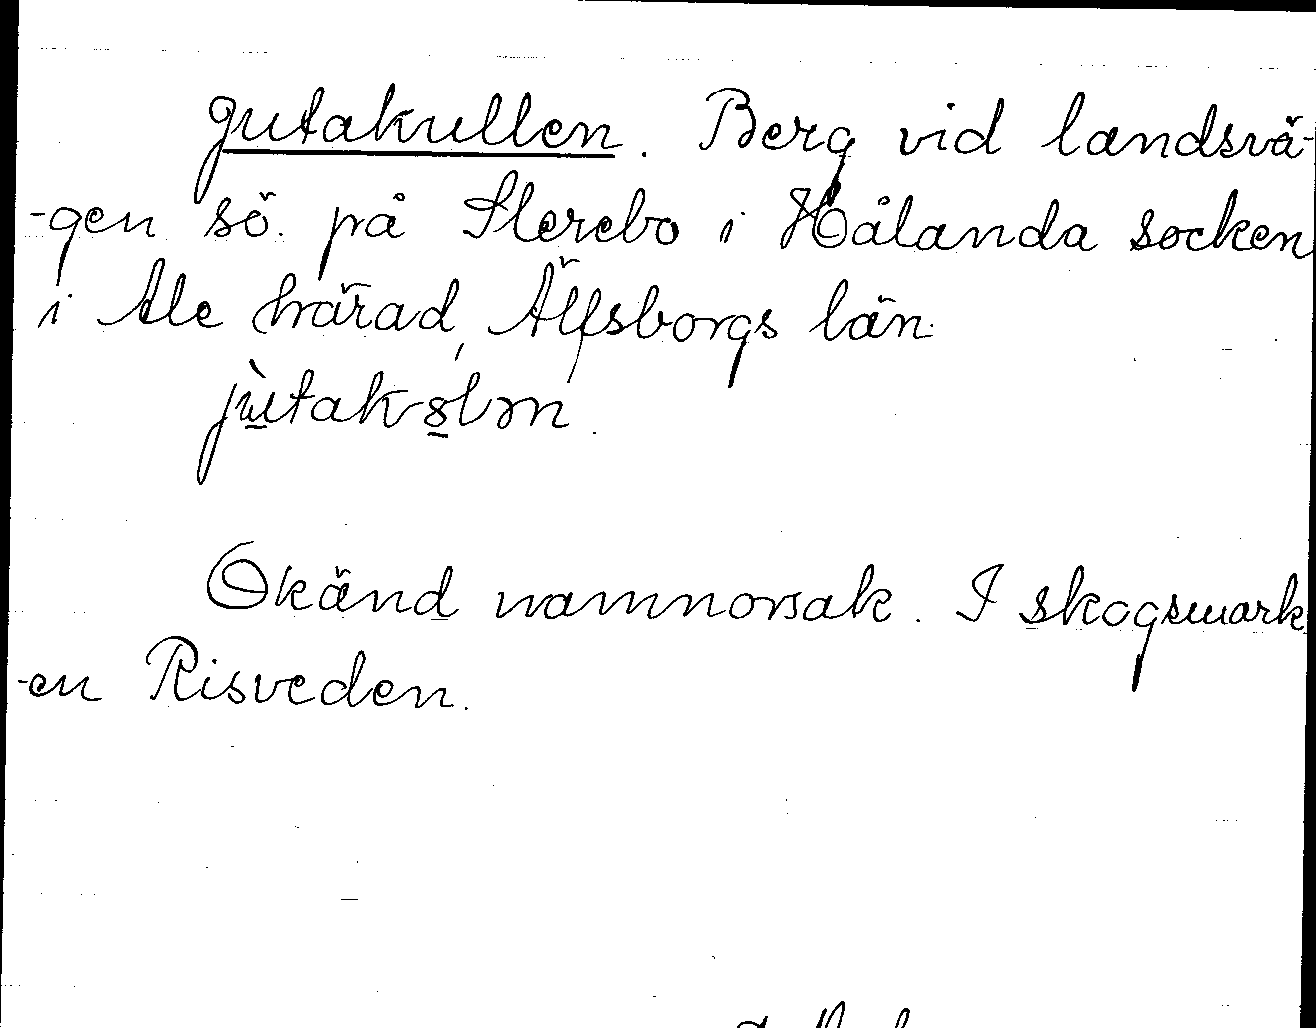 Jutakullen. Berg vid landsvä-
-gen sö. på Slerebo i Hålanda socken
i Ale härad, Älfsborgs län.
jùtakslm.
Okänd namnorsak. I skogsmark
-en Risveden.